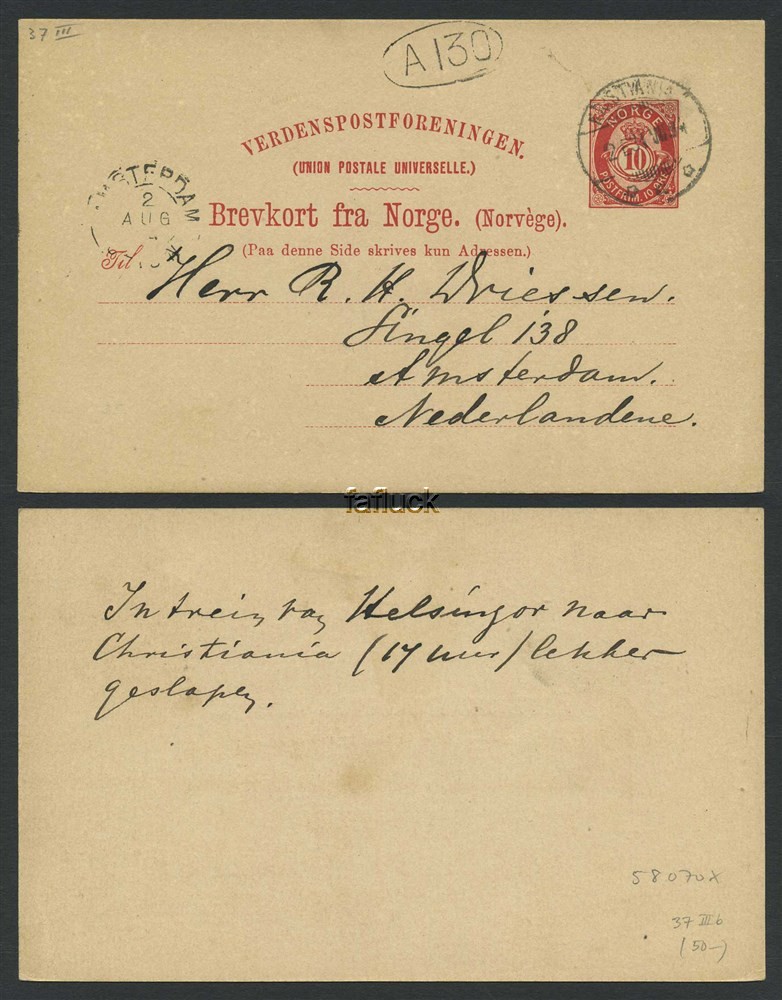 37 III
A 130
VERDENSPOSTFORENINGEN.
(UNION POSTALE UNIVERSELLE.)
NORGE
10
POSTFRIM. 10 ØRE
AMSTERDAM
2
AUG
Brevkort fra Norge. (Norvège).
(Paa denne Side skrives kun Adressen.)
Til
Herr R. H. Driessen.
Singel 138
Amsterdam.
Nederlandene.
fafluck
In trein van Helsingor naar
Christiania (17 uur) lekker
geslapen.
58070x
37 III b
(50-)